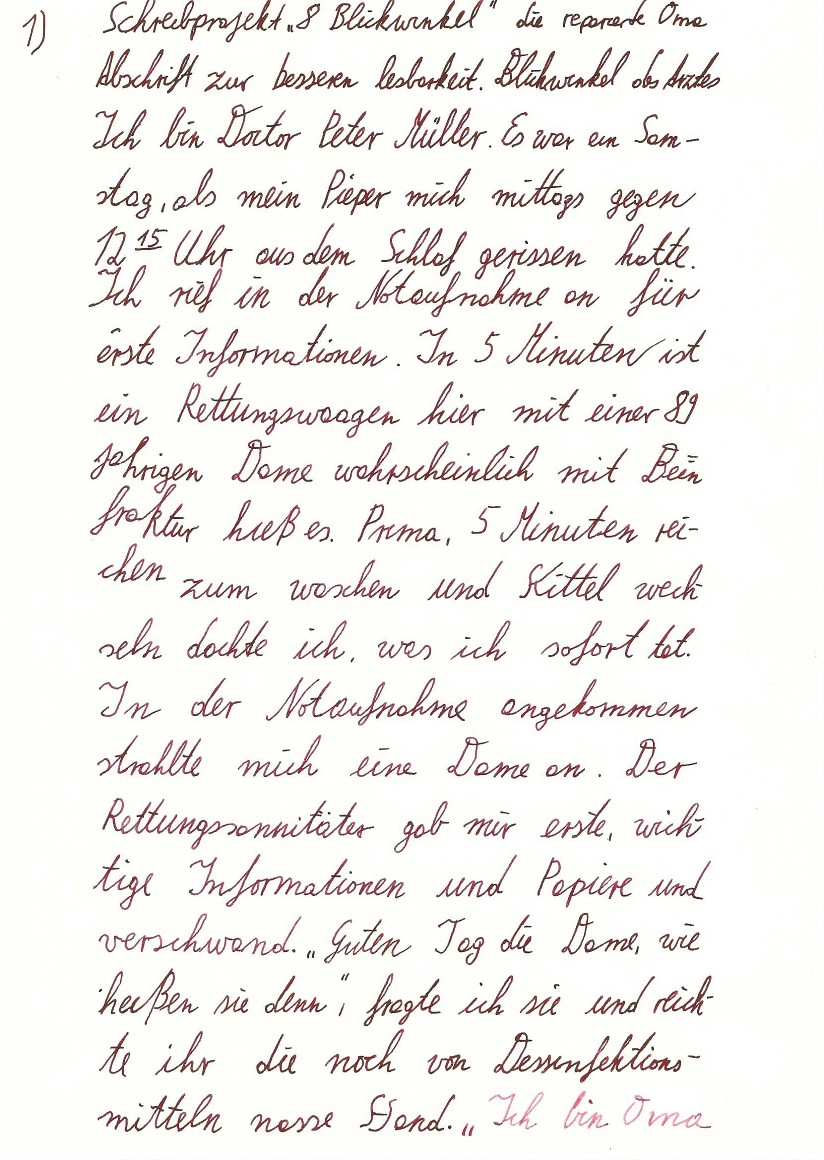 1) Schreibprojekt „8 Blickwinkel" die reparierte Oma
Abschrift zur besseren lesbarkeit. Blickwinkel des Arztes
Ich bin Doctor Peter Müller. Es war ein Sam-
stag, als mein Pieper mich mittags gegen
12 15 Uhr aus dem Schlaf gerissen hatte.
Ich rief in der Notaufnahme an für
erste Informationen. In 5 Minuten ist
ein Rettungswaagen hier mit einer 89
Jahrigen Dame wahrscheinlich mit Bein
fraktur hieß es. Prima, 5 Minuten rei-
chen zum waschen und Kittel wech
seln dachte ich, was ich sofort tat.
In der Notaufnahme angekommen
strahlte mich eine Dame an. Der
Rettungssannitäter gab mir erste, wich
tige Informationen und Papiere und
verschwand. „Guten Tag die Dame, wie
heißen sie denn", fragte ich sie und reich-
te ihr die noch von Dessinfektions-
mitteln nasse Hand. „Ich bin Oma